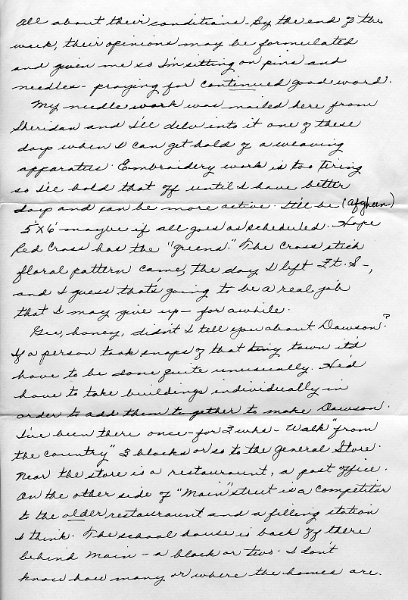 all about their conditions. By the end of the
week, their opinions may be formulated
and given me so I'm sitting on pins and
needles - praying for continued good word.
My needle work was mailed here from
Sheridan and I'll delve into it one of these
days when I can get hold of a weaving
apparatus. Embroidery work is too tiring
so I'll hold that off until I have better
days and can be more active. It'll be (afghan)
5'x6' maybe if all goes as scheduled. Hope
Red Cross has the "greens." The cross stick
floral pattern came, the day I left Ft. S-,
and I guess, that's going to be a real job
that I may give up - for awhile.
Gee, honey, didn't I tell you about Dawson?
If a person took snaps of that town it'd
have to be done quite unusually. He'd
have to take buildings individually in
order to add them together to make Dawson.
I've been there once - for 2 wks - Walk "from
the country" 3 blocks or so to the General Store.
Near the store is a restauraunt, a post office.
On the other side of "Main" street is a competitor
to the older restauraunt and a filling station
I think. The school house is back off there
behind Main - a block or two. I don't
know how many or where the homes are.